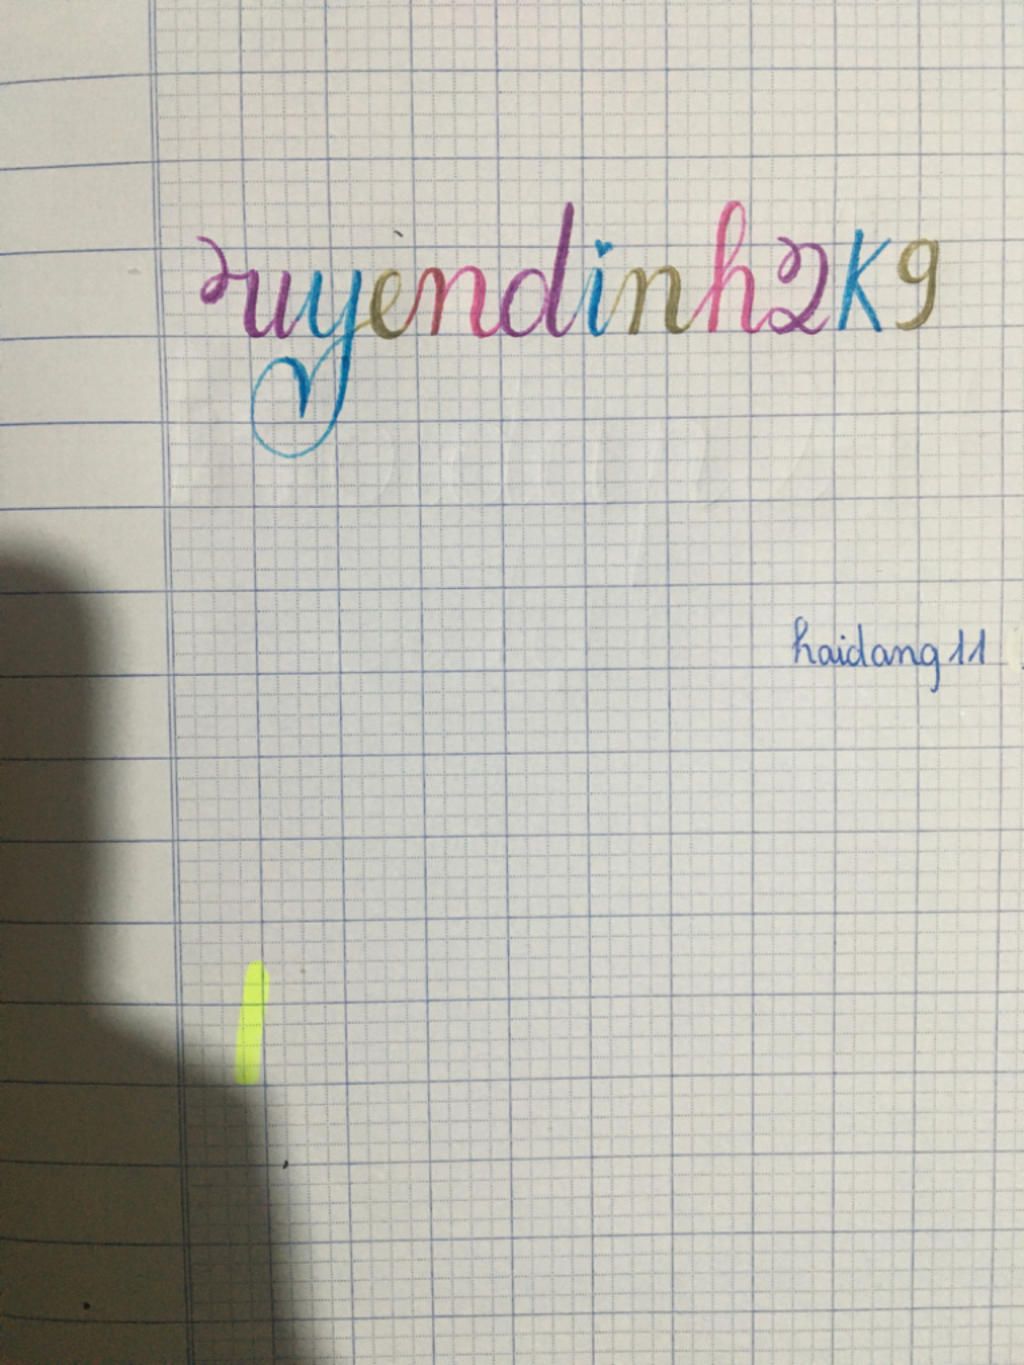 uyendinh2k9
haidang11